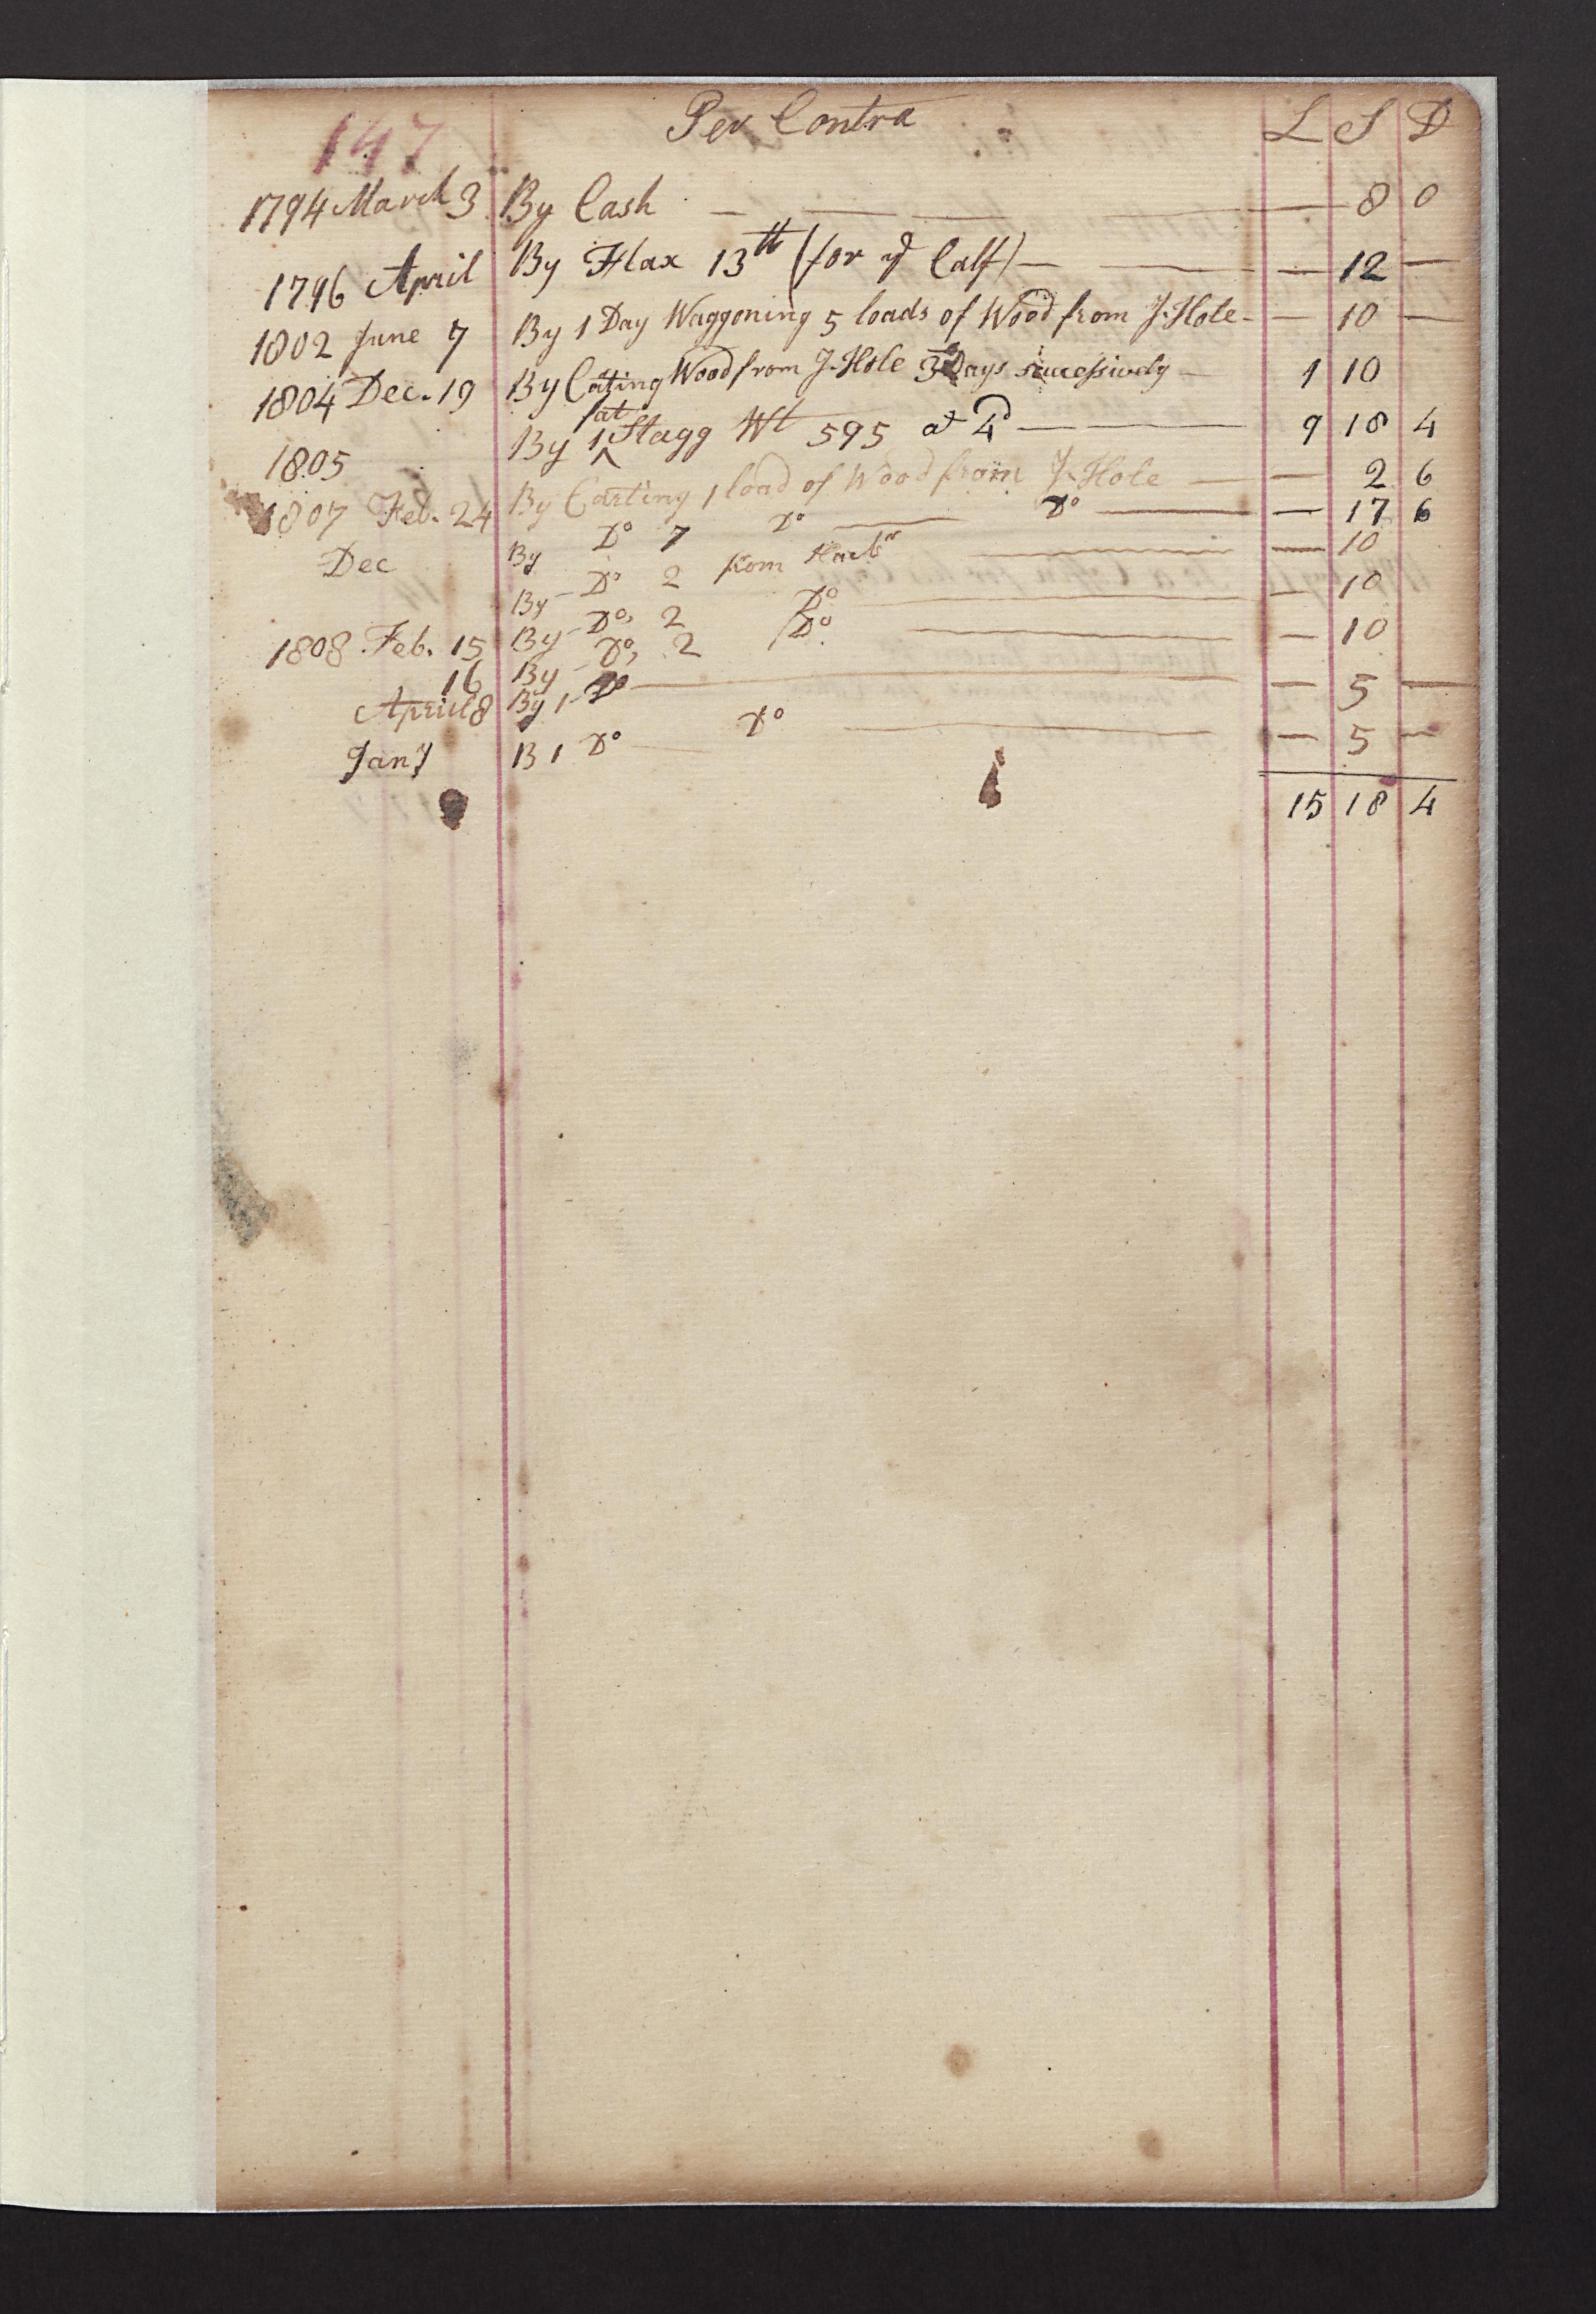 147 Per Contra L S D
1794 March 3 By Cash — — — — 8 0
1796 April By Flax 13 lb (for ye Calf) — — — 12 —
1802 June 7 By 1 Day Waggoning 5 loads of Wood from J. Hole — — 10 —
1804 Dec. 19 By Cating Wood from J. Hole 3 Days sucessively — 1 10
fat
1805 By 1 ^ Stagg Wt 595 at 4d — — 9 18 4
1807 Feb. 24 By Carting 1 load of Wood from J. Hole — — 2 6
Dec By Do 7 Do — Do — — 17 6
By - Do 2 from — — 10
By - Do, 2 Do — — 10
1808 Feb. 15 By - Do, 2 Do — — 10
16 By - Do — — 5 —
April 8 By 1
Jany B 1 Do — Do — — 5 —
15 18 4